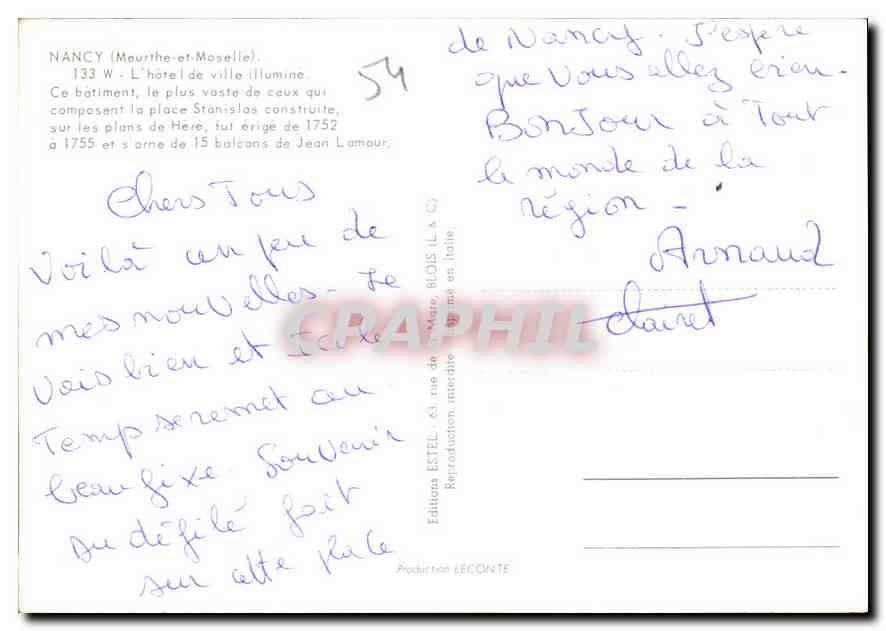 NANCY (Meurthe-et-Moselle).
133 W - L'hôtel de ville illuminé.
Ce bâtiment, le plus vaste de ceux qui
composent la place Stanislas construite,
sur les plans de Héré, fut érigé de 1752
à 1755 et s'orne de 15 balcons de Jean Lamour.
54
Chers Tous
Voilà un peu de
mes nouvelles - Je
vais bien et Ici le
Temp se remet au
beau fixe. Souvenir
du défilé fait
sur cette place
de Nancy. J'espere
que vous allez bien.
BonJour à Tout
le monde de la
région -
Arnaud
Clairet
Editions ESTEL - 63, rue de la Mare, BLOIS (L & C)
Reproduction interdite - Imprimé en Italie
Production LECONTE
CPAPHIL